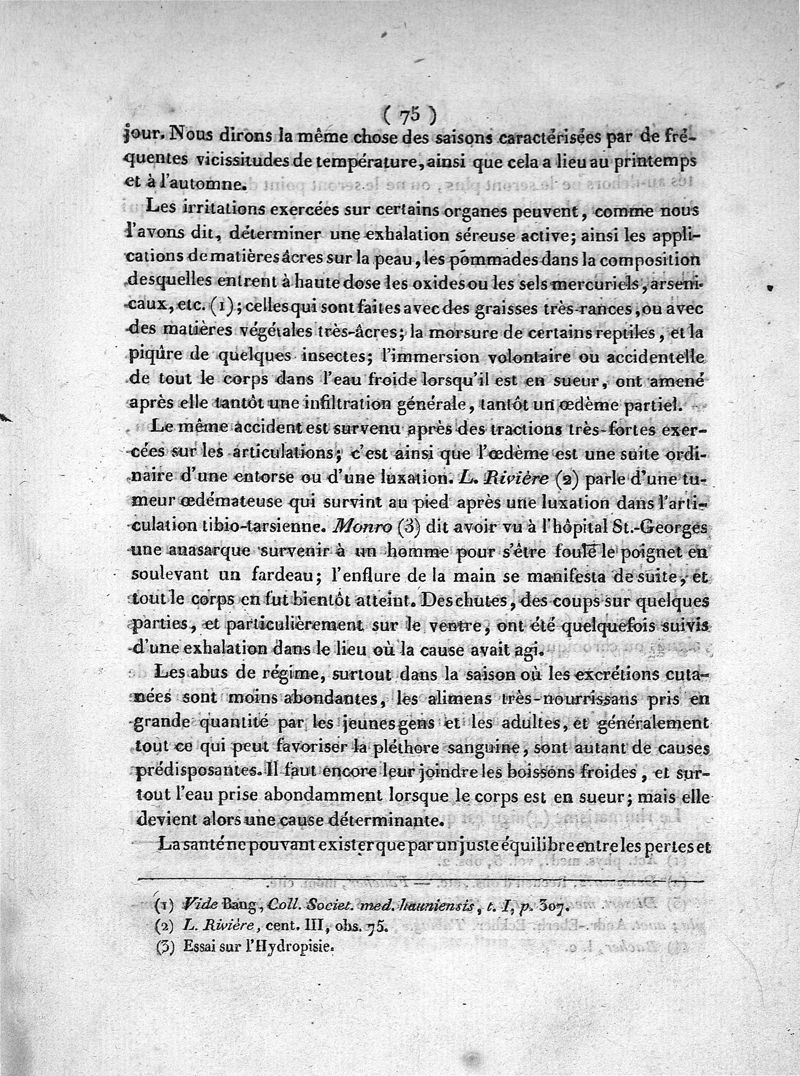 ( 75 )
jour. Nous dirons la même chose des saisons caractérisées par de fré-
quentes vicissitudes de température, ainsi que cela a lieu au printemps
et à l'automne.
Les irritations exercées sur certains organes peuvent, comme nous
l'avons dit, déterminer une exhalation séreuse active; ainsi les appli-
cations de matières âcres sur la peau, les pommades dans la composition
desquelles entrent à haute dose les oxides ou les sels mercuriels, arseni-
caux, etc. (1); celles qui sont faites avec des graisses très-rances, ou avec
des matières végétales très-âcres; la morsure de certains reptiles, et la
piqûre de quelques insectes; l'immersion volontaire ou accidentelle
de tout le corps dans l'eau froide lorsqu'il est en sueur, ont amené
après elle tantôt une infiltration générale, tantôt un œdème partiel.
Le même accident est survenu après des tractions très-fortes exer-
cées sur les articulations; c'est ainsi que l'œdème est une suite ordi-
naire d'une entorse ou d'une luxation. L. Rivière (2) parle d'une tu-
meur œdémateuse qui survint au pied après une luxation dans l'arti-
culation tibio-tarsienne. Monro (3) dit avoir vu à l'hôpital St.-Georges
une anasarque survenir à un homme pour s'être foulé le poignet en
soulevant un fardeau; l'enflure de la main se manifesta de suite, et
tout le corps en fut bientôt atteint. Des chutes, des coups sur quelques
parties, et particulièrement sur le ventre, ont été quelquefois suivis
d'une exhalation dans le lieu où la cause avait agi.
Les abus de régime, surtout dans la saison où les excrétions cuta-
nées sont moins abondantes, les alimens très-nourrissans pris en
grande quantité par les jeunes gens et les adultes, et généralement
tout ce qui peut favoriser la pléthore sanguine, sont autant de causes
prédisposantes. Il faut encore leur joindre les boissons froides, et sur-
tout l'eau prise abondamment lorsque le corps est en sueur; mais elle
devient alors une cause déterminante.
La santé ne pouvant exister que par un juste équilibre entre les pertes et
(1) Vide Bang, Coll. Societ. med. hauniensis, t. I, p. 307.
(2) L. Rivière, cent. III, obs. 75.
(3) Essai sur l'Hydropisie.